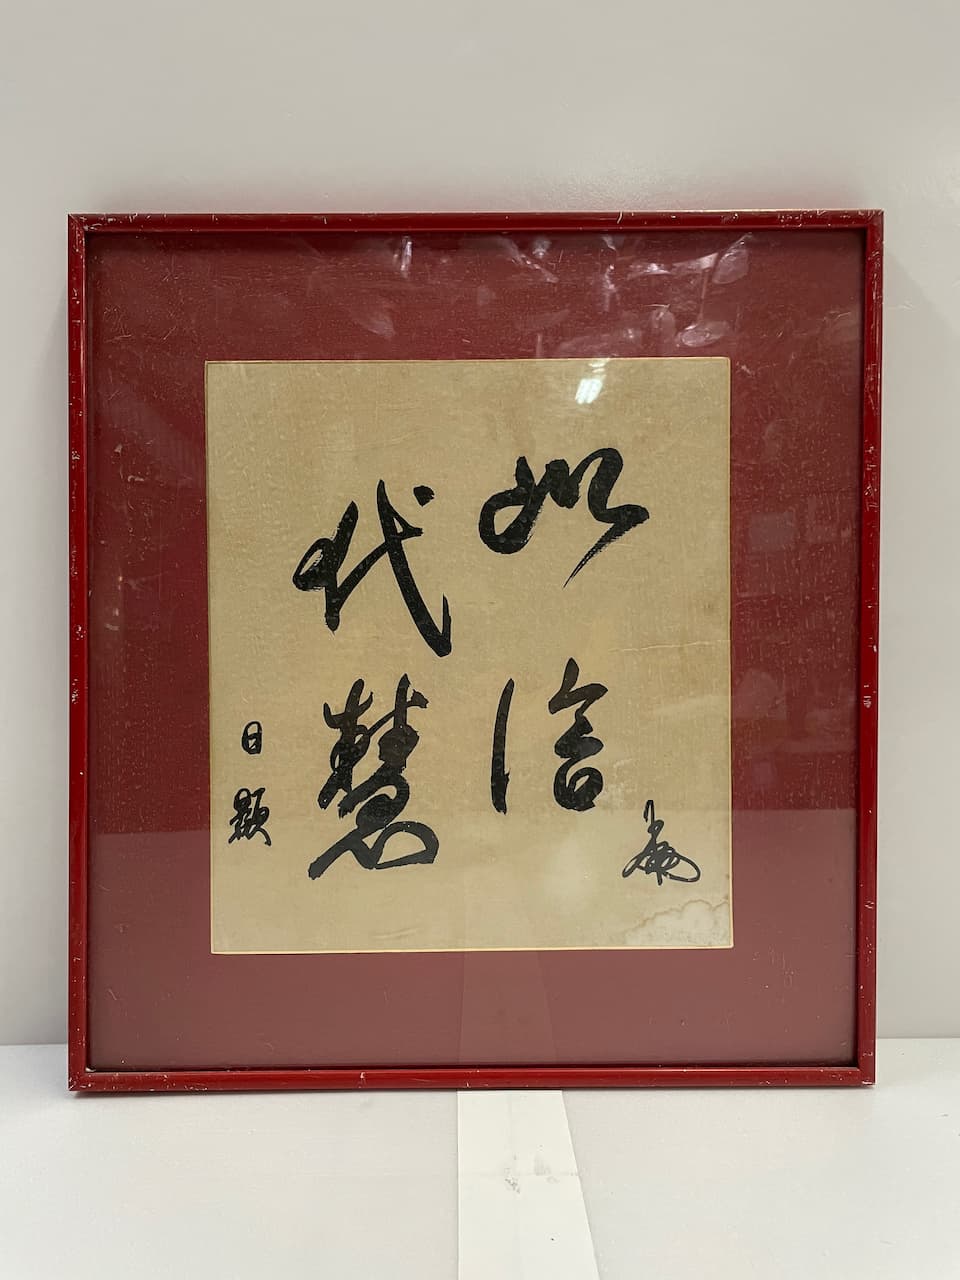 以信
代慧
日顯